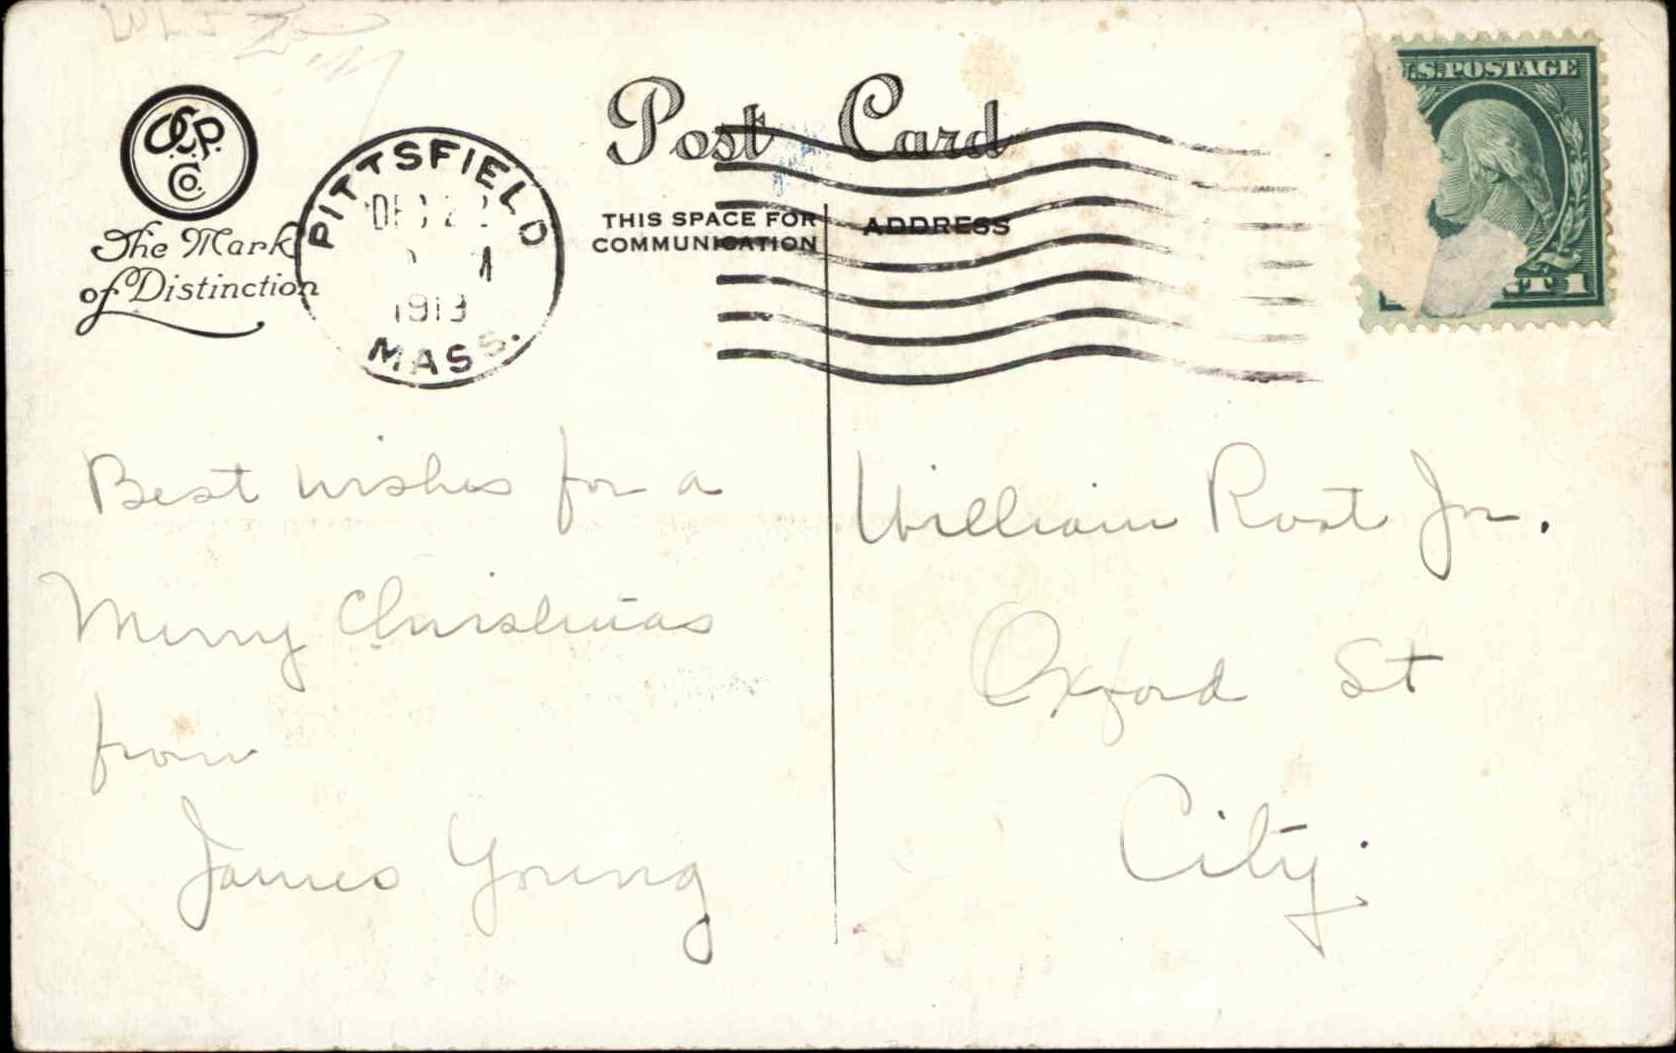 C.S.P.
Co.
The Mark
of Distinction
PITTSFIELD
DEC 22
1913
MASS.
Post Card
THIS SPACE FOR
COMMUNICATION
ADDRESS
U.S. POSTAGE
1
Best wishes for a
Merry Christmas
from
James Young
William Rost Jr.
Oxford St
City.